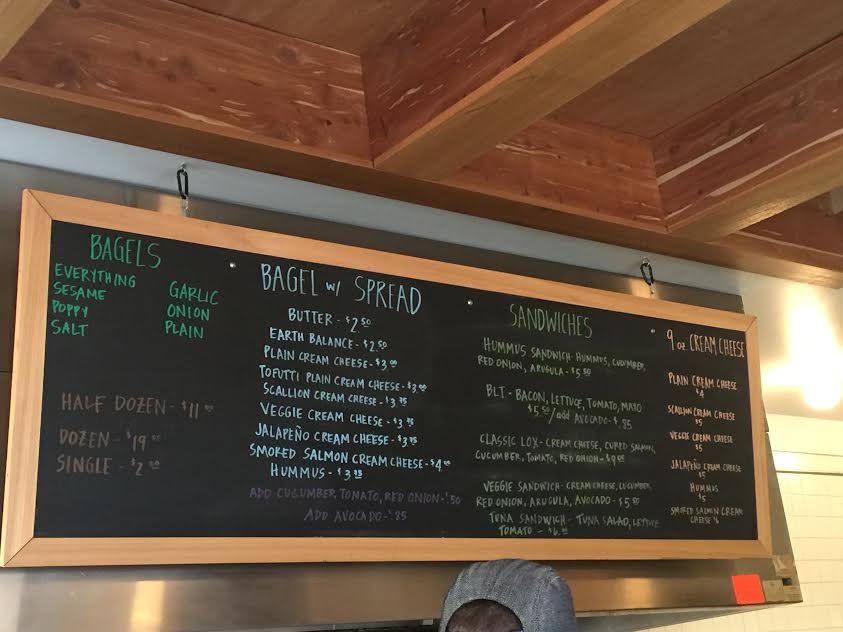 BAGELS
EVERYTHING
SESAME
POPPY
SALT
GARLIC
ONION
PLAIN
HALF DOZEN - $11 00
DOZEN - $19 00
SINGLE - $2 00
BAGEL w/ SPREAD
BUTTER - $2 50
EARTH BALANCE - $2 50
PLAIN CREAM CHEESE - $3 00
TOFUTTI PLAIN CREAM CHEESE - $3 00
SCALLION CREAM CHEESE - $3 75
VEGGIE CREAM CHEESE - $3 75
JALAPEÑO CREAM CHEESE - $3 75
SMOKED SALMON CREAM CHEESE - $4
HUMMUS - $3 75
ADD CUCUMBER, TOMATO, RED ONION - .50
ADD AVOCADO - .85
SANDWICHES
HUMMUS SANDWICH - HUMMUS, CUCUMBER,
RED ONION, ARUGULA - $5.50
BLT - BACON, LETTUCE, TOMATO, MAYO
$5.50/add AVOCADO - .85
CLASSIC LOX - CREAM CHEESE, CURED SALMON,
CUCUMBER, TOMATO, RED ONION - $9
VEGGIE SANDWICH - CREAM CHEESE, CUCUMBER,
RED ONION, ARUGULA, AVOCADO - $5 50
TUNA SANDWICH - TUNA SALAD, LETTUCE
TOMATO - $6
9 oz CREAM CHEESE
PLAIN CREAM CHEESE
$4
SCALLION CREAM CHEESE
$5
VEGGIE CREAM CHEESE
$5
JALAPEÑO CREAM CHEESE
$5
HUMMUS
$5
SMOKED SALMON CREAM
CHEESE $6